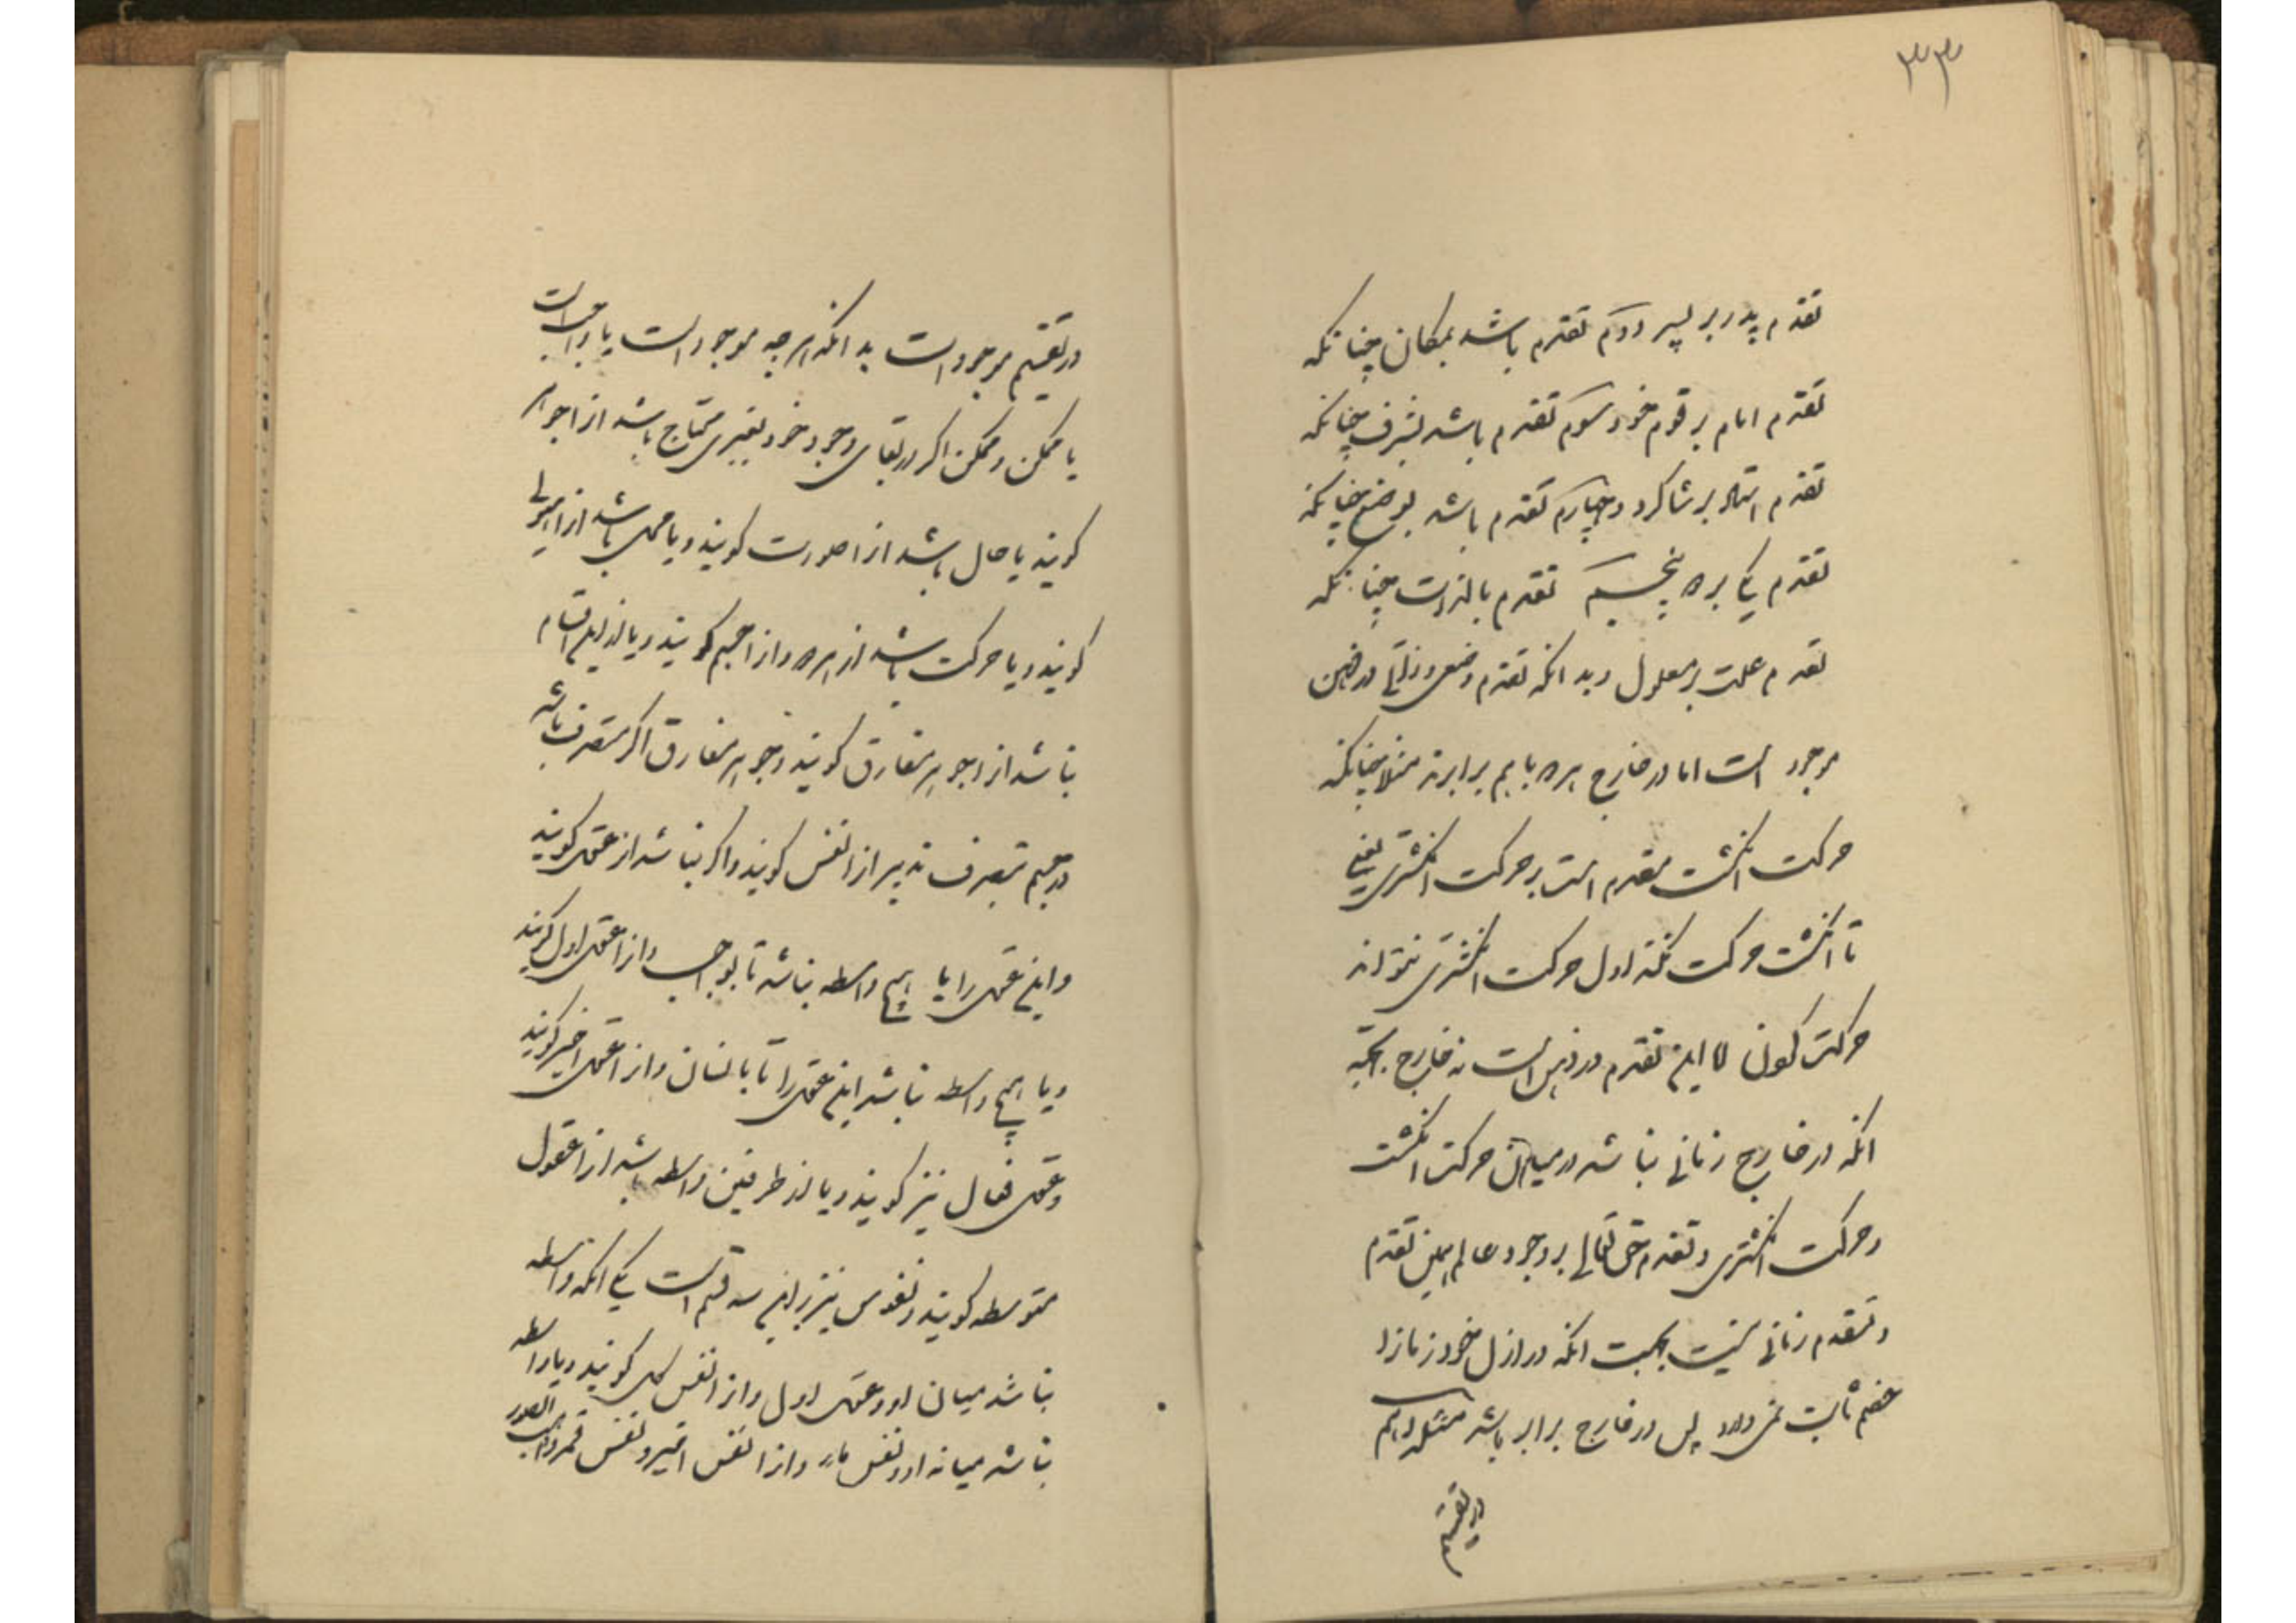 ٣٣
تقدم پدر بر پسر دوم تقدم باشد بمکان چنانکه
تقدم امام بر قوم خود سوم تقدم باشد بشرف چنانکه
تقدم استاد بر شاکرد و چهارم تقدم باشد بوضع چنانکه
تقدم یکی بر دو پنجم تقدم بالذات چنانکه
تقدم علت بر معلول و بدانکه تقدم وضعی و ذاتی در ذهن
موجود است اما در خارج هر دو با هم برابرند مثلا چنانکه
حرکت انکشت مقدم است بر حرکت انکشتری یعنی
تا انکشت حرکت نکند اول حرکت انکشتری نتواند
حرکت کردن اما این تقدم در ذهن است نه خارج بجهة
انکه در خارج زمانی نباشد در میان حرکت انکشت
و حرکت انکشتری و تقدم حق تعالی بر وجود عالم همین تقدم
و تقدم زمانی نیست بجهت انکه در ازل خود زمان را
خصم ثابت نمی دارد پس در خارج برابر باشد مسئله دهم
در تقسیم
در تقسیم موجود است بدانکه هر چه موجود است یا واجب است
یا ممکن و ممکن اکر در بقای وجود خود بغیری محتاج باشد انرا جوهر
کویند یا حال باشد انرا صورت کویند و یا محل باشد انرا هیولی
کویند و یا مرکب باشد از هر دو انرا جسم کویند و یا از این اقسام
نباشد انرا جوهر مفارق کویند و جوهر مفارق اکر متصرف باشد
در جسم بتصرف تدبیر انرا نفس کویند و اکر نباشد انرا عقل کویند
و این عقل را یا هیچ واسطه نباشد تا بواجب و انرا عقل اول کویند
و یا هیچ واسطه نباشد این عقل را تا بانسان و انرا عقل اخیر کویند
و عقل فعال نیز کویند و یا از طرفین واسطه باشد انرا عقول
متوسطه کویند و نفوس نیز بر این سه قسم است یکی انکه واسطه
نباشد میان او و عقل اول و انرا نفس کل کویند و یا واسطه
نباشد میانه او و نفس ما و انرا نفس اخیر و نفس قمر و واهب الصور